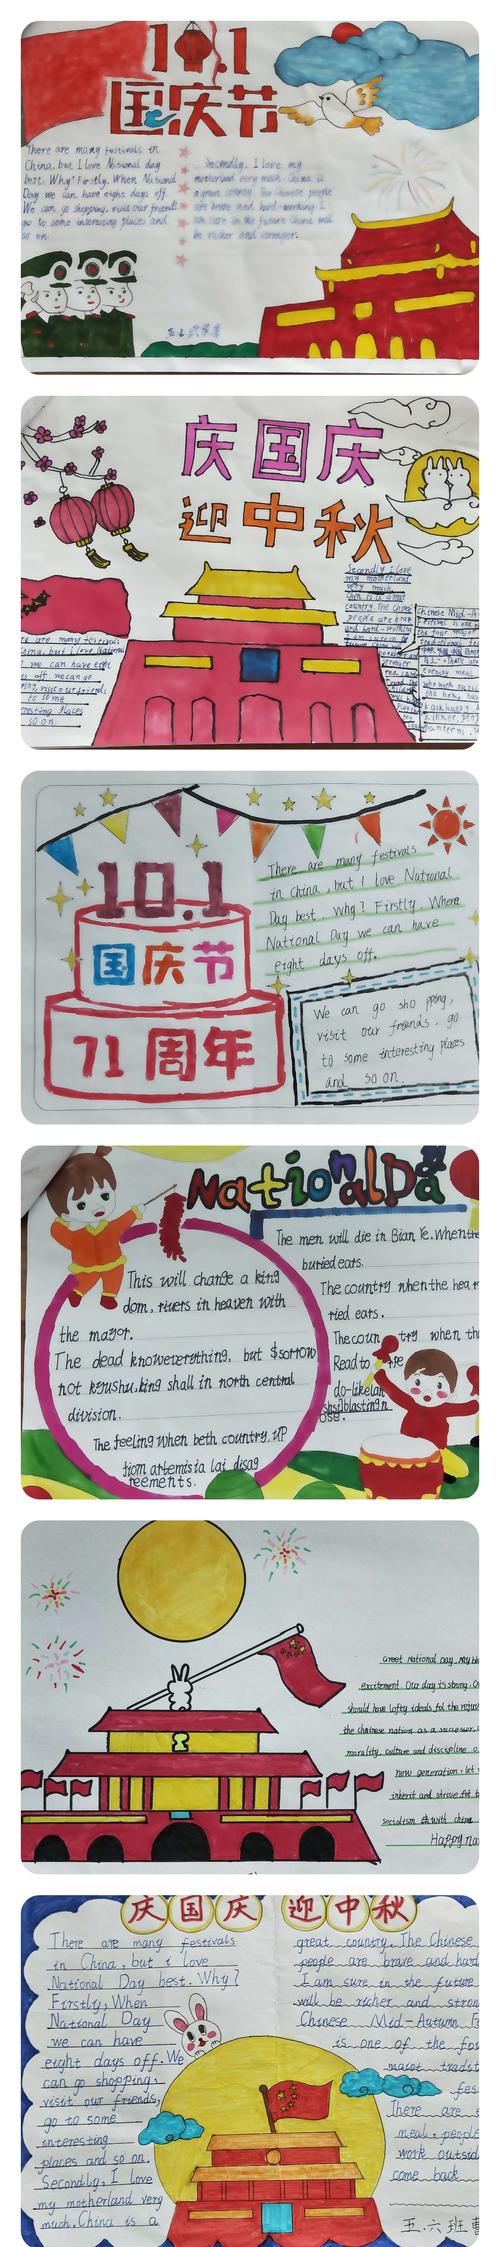 10.1
国庆节
There are many festivals in
China, but I love National day
best. Why? Firstly. When National
Day we can have eight days off
We can go shopping, visit our friends
go to some interesting places and
so on.
Secondly. I love my
motherland very much. China is
a great country. The Chinese people
are brave and hard-working. I
am sure in the future China will
be richer and stronger.
庆国庆
迎中秋
Secondly I love
my motherland
very much.
country. The Chinese
people are brave
and hard-working
Chinese Mid-A
the four major
traditional
evening meal
who work outside
s are many festivals
hina, but I love National
we can have eight
s off. we can go
ping, visit our friends
to some
resting places
so on.
10.1
国庆节
71周年
There are many festivals
in China, but I love National
Day best. Why? Firstly. When
National Day we can have
eight days off.
We can go sho pping,
visit our friends, go
to some interesting places
and so on.
National Da
This will change a king
dom, rivers in heaven with
the mayor.
The dead knoweverything, but $sorrow
not kyushu, king shall in north central
division.
The feeling when beth country. up
tiom artemisia lai disag
reements.
The men will die in Bian Ye. When the
buried ears.
The country when the hear
ried ears.
The coun try when th
Read to
do-like lan
ose.
Great National Day. My
excitement. Our day is strong. O
should have lofty ideals fol the rejuv
the chinese nation as a successor
morality culture and discipline o
new generation, let
inherit and strive fot t
socialism with china
Happy na
庆国庆 迎中秋
There are many festivals
in China, but i love
National Day best. Why?
Firstly, When
National Day
we can have
eight days off. We
can go shopping,
visit our friends,
go to some
interesting
places and so on.
Secondly, I love
my motherland very
much. China is a
great country. The Chinese
people are brave and hard
I am sure in the future
will be richer and stron
Chinese Mid-Autumn F
is one of the fo
major tradit
fes
There are
meal, people
work outsid
come back
五.六班